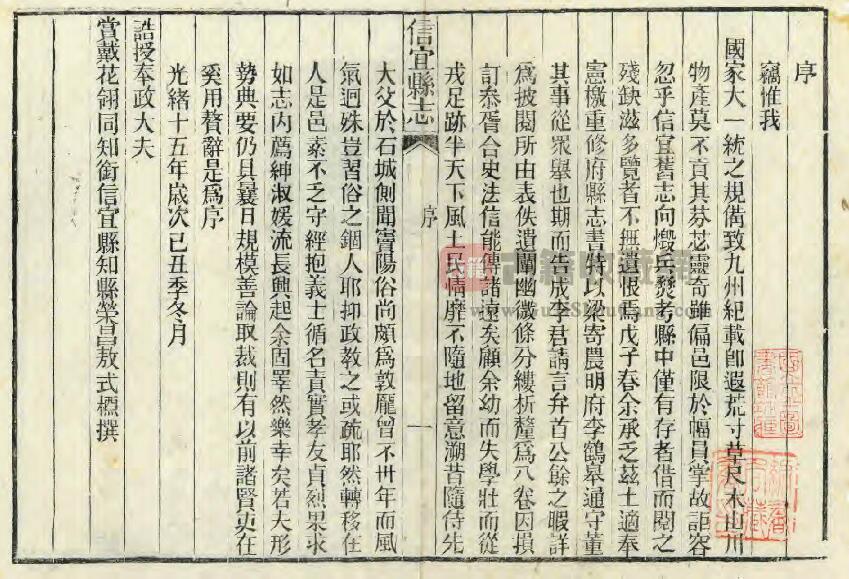 序
竊惟我
國家大一統之規備致九州紀載卽遐荒寸草尺木山川
物產莫不貢其芬苾靈奇雖偏邑限於幅員掌故詎容
忽乎信宜舊志向燬兵燹考縣中僅有存者借而閱之
殘缺滋多覽者不無遺恨焉戊子春余承乏茲土適奉
憲檄重修府縣志書特以梁寄農明府李鶴皋通守董
其事從眾舉也期而告成李君請言弁首公餘之暇詳
爲披閱所由表佚遺闡幽微條分縷析釐爲八卷因損
訂叅胥合史法信能傳諸遠矣顧余幼而失學壯而從
戎足跡半天下風土民情靡不隨地留意溯昔隨侍先
大父於石城側聞竇陽俗尚頗爲敦龐曾不卅年而風
氣迥殊豈習俗之錮人耶抑政教之或疏耶然轉移在
人是邑素不乏守經抱義士循名責實孝友貞烈果求
如志內薦紳淑媛流長興起余固睪然樂幸矣若大形
勢典要仍具曩日規模善論取裁則有以前諸賢叟在
奚用贅辭是爲序
光緒十五年歲次己丑季冬月
誥授奉政大夫
賞戴花翎同知銜信宜縣知縣榮昌敖式槱撰
信宜縣志
序
一